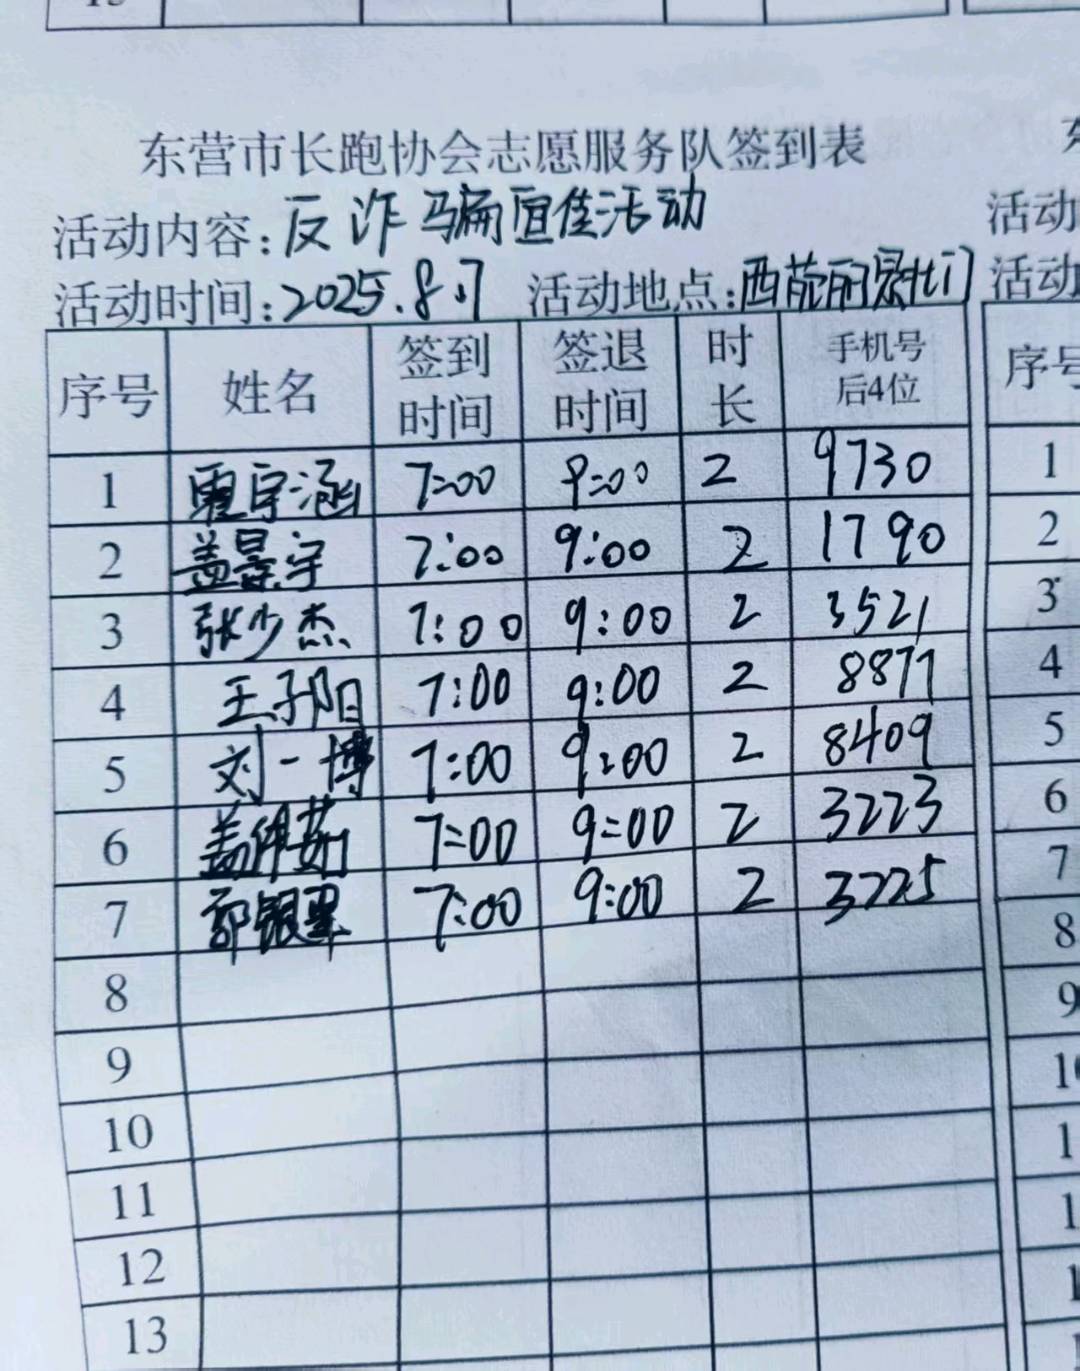 东营市长跑协会志愿服务队签到表
活动内容:反诈骗宣传活动
活动时间:2025.8.7 活动地点:西苑丽景北门
序号 姓名 签到时间 签退时间 时长 手机号后4位
1 宇涵 7:00 9:00 2 9730
2 盖景宇 7:00 9:00 2 1790
3 张少杰 7:00 9:00 2 3521
4 王子阳 7:00 9:00 2 8877
5 刘一博 7:00 9:00 2 8409
6 盖 7:00 9:00 2 3223
7 郭银翠 7:00 9:00 2 3225
8
9
10
11
12
13
活动
活动
序号
1
2
3
4
5
6
7
8
9